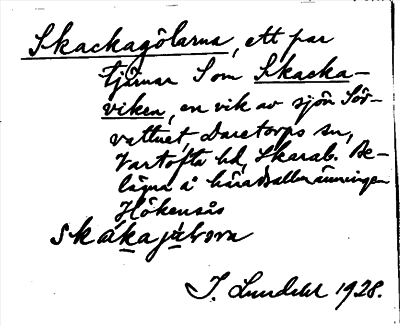 Skackagölarna, ett par
tjärnar S om Skacka-
viken, en vik av sjön Sör-
vattnet, Daretorps sn,
Vartofta hd, Skarab. Be-
lägna å häradsallmänningen
Hökensås
skákajǽlɒrna
J. Lundahl 1928.